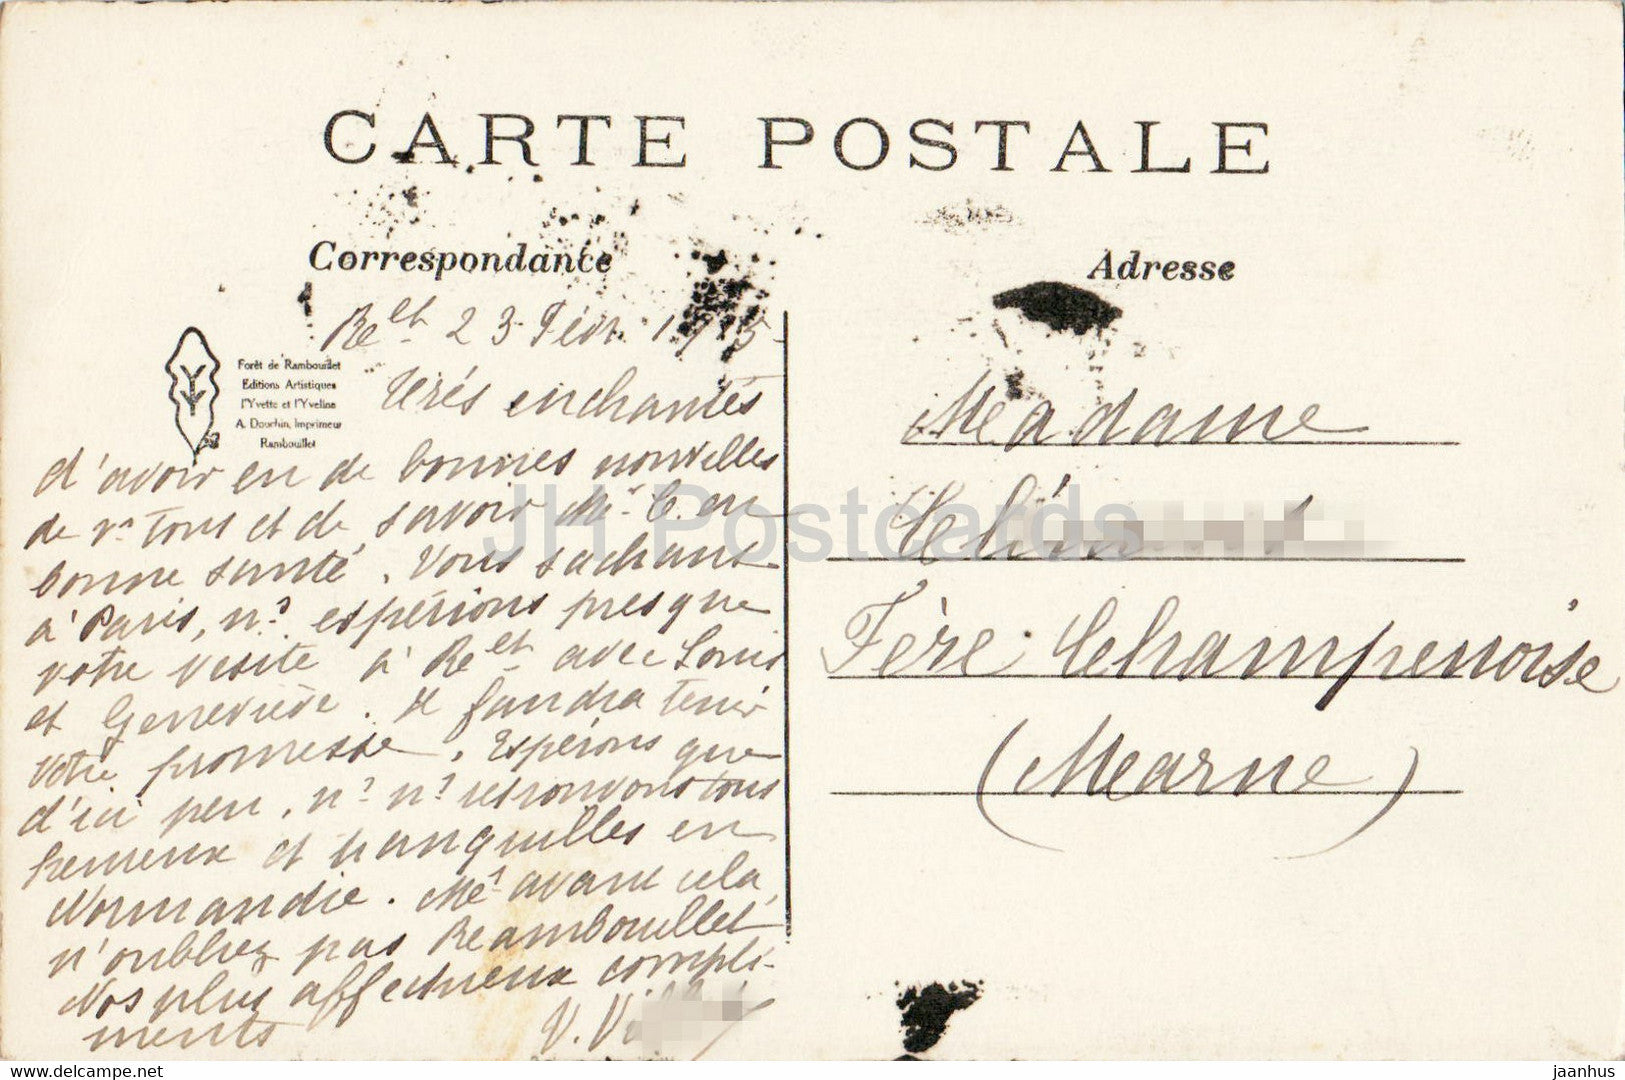 CARTE POSTALE
Correspondance
Adresse
Forêt de Rambouillet
Editions Artistiques
l'Yvette et l'Yveline
A. Douchin, Imprimeur
Rambouillet
Ret 23 Févr. 1915
Très enchantés
d'avoir eu de bonnes nouvelles
de vs tous et de savoir Mr C. en
bonne santé. Vous sachant
à Paris, ns espérions presque
votre visite à Ret avec Louis
et Geneviève. Il faudra tenir
votre promesse. Espérons que
d'ici peu, ns ns retrouvons tous
heureux et tranquilles en
Normandie. Mais avant cela,
n'oubliez pas Rambouillet
Nos plus affectueux compli-
ments
V. Vi
Madame
Fère Champenoise
(Marne)
JH Postcards
delcampe.net
jaanhus